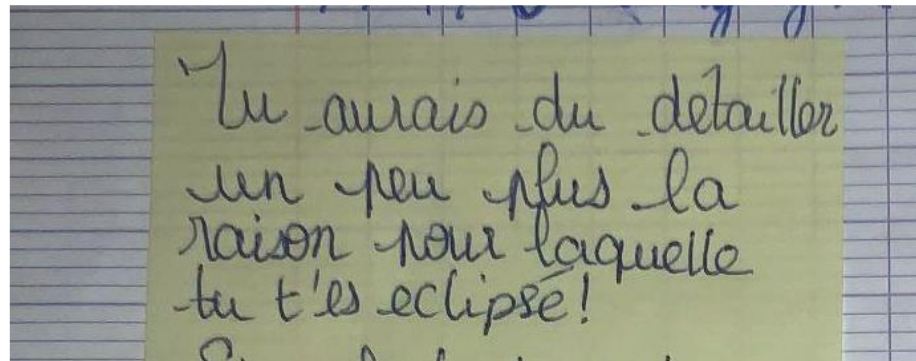 Tu aurais du détailler
un peu plus la
raison pour laquelle
tu t'es eclipsé!